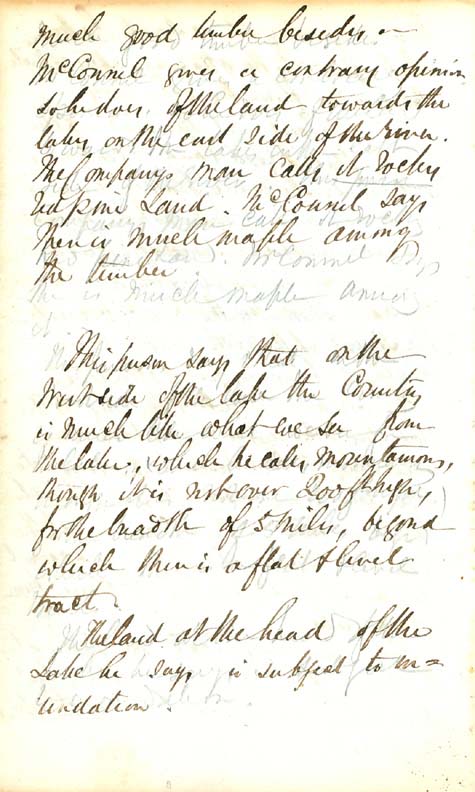 much good timber besides –
McConnel gives a contrary opinion
so he does. Of the land towards the
lake, on the east side of the river.
The Companys man calls it rocky
Land. McConnel says
there is much maple among
the timber.
This person says that on the
West side of the lake the Country
is much like what we see from
the lake, which he calls mountainous,
though it is not over 200 ft high,
for the breadth of 5 miles, beyond
which there is a flat & level
tract.
The land at the head of the
Lake he says is subject to in=
undation.